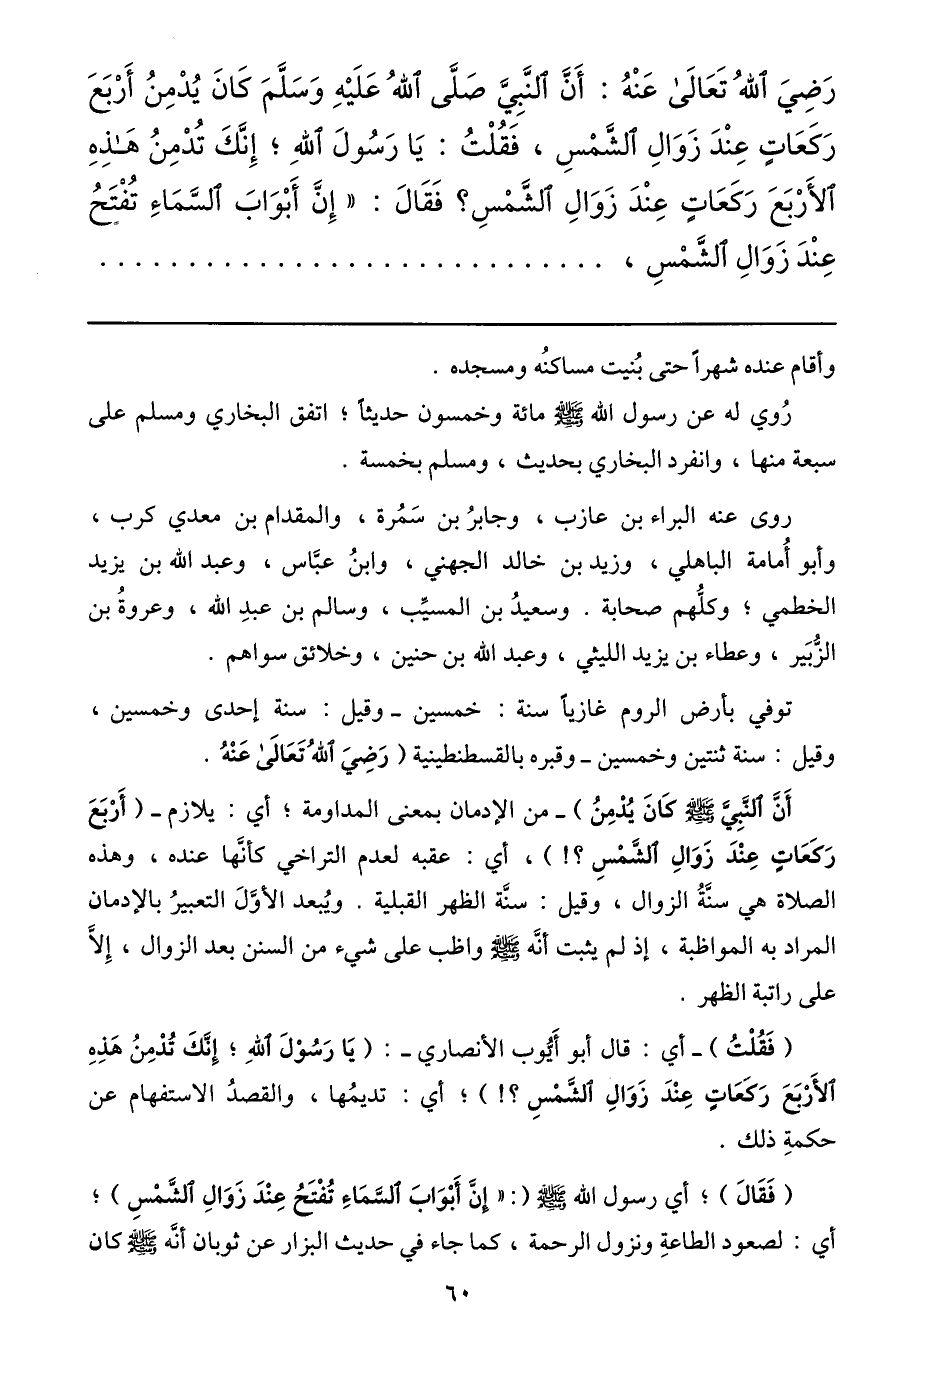 رَضِيَ ٱللهُ تَعَالَىٰ عَنْهُ : أَنَّ ٱلنَّبِيَّ صَلَّى ٱللهُ عَلَيْهِ وَسَلَّمَ كَانَ يُدْمِنُ أَرْبَعَ
رَكَعَاتٍ عِنْدَ زَوَالِ ٱلشَّمْسِ ، فَقُلْتُ : يَا رَسُولَ ٱللهِ ؛ إِنَّكَ تُدْمِنُ هَـٰذِهِ
ٱلأَرْبَعَ رَكَعَاتٍ عِنْدَ زَوَالِ ٱلشَّمْسِ؟ فَقَالَ : « إِنَّ أَبْوَابَ ٱلسَّمَاءِ تُفْتَحُ
عِنْدَ زَوَالِ ٱلشَّمْسِ ، . . . . . . . . . . . . . . . . . . . . . . . . . . . .
وأقام عنده شهراً حتى بُنيت مساكنُه ومسجده .
رُوي له عن رسول الله ﷺ مائة وخمسون حديثاً ؛ اتفق البخاري ومسلم على
سبعة منها ، وانفرد البخاري بحديث ، ومسلم بخمسة .
روى عنه البراء بن عازب ، وجابرُ بن سَمُرة ، والمقدام بن معدي كرب ،
وأبو أُمامة الباهلي ، وزيد بن خالد الجهني ، وابنُ عبَّاس ، وعبد الله بن يزيد
الخطمي ؛ وكلُّهم صحابة . وسعيدُ بن المسيِّب ، وسالم بن عبدِ الله ، وعروةُ بن
الزُّبَير ، وعطاء بن يزيد الليثي ، وعبد الله بن حنين ، وخلائق سواهم .
توفي بأرض الروم غازياً سنة : خمسين ـ وقيل : سنة إحدى وخمسين ،
وقيل : سنة ثنتين وخمسين ـ وقبره بالقسطنطينية ( رَضِيَ ٱللهُ تَعَالَىٰ عَنْهُ .
أَنَّ ٱلنَّبِيَّ ﷺ كَانَ يُدْمِنُ ) ـ من الإدمان بمعنى المداومة ؛ أي : يلازم ـ ( أَرْبَعَ
رَكَعَاتٍ عِنْدَ زَوَالِ ٱلشَّمْسِ ؟! ) ، أي : عقبه لعدم التراخي كأنَّها عنده ، وهذه
الصلاة هي سنَّةُ الزوال ، وقيل : سنَّة الظهر القبلية . ويُبعد الأوَّلَ التعبيرُ بالإدمان
المراد به المواظبة ، إذ لم يثبت أنَّه ﷺ واظب على شيء من السنن بعد الزوال ، إلاَّ
على راتبة الظهر .
( فَقُلْتُ ) ـ أي : قال أبو أيُّوب الأنصاري ـ : ( يَا رَسُوْلَ ٱللهِ ؛ إِنَّكَ تُدْمِنُ هَذِهِ
ٱلأَرْبَعَ رَكَعَاتٍ عِنْدَ زَوَالِ ٱلشَّمْسِ ؟! ) ؛ أي : تديمُها ، والقصدُ الاستفهام عن
حكمةِ ذلك .
( فَقَالَ ) ؛ أي رسول الله ﷺ (: « إِنَّ أَبْوَابَ ٱلسَّمَاءِ تُفْتَحُ عِنْدَ زَوَالِ ٱلشَّمْسِ ) ؛
أي : لصعود الطاعةِ ونزول الرحمة ، كما جاء في حديث البزار عن ثوبان أنَّه ﷺ كان
٦٠